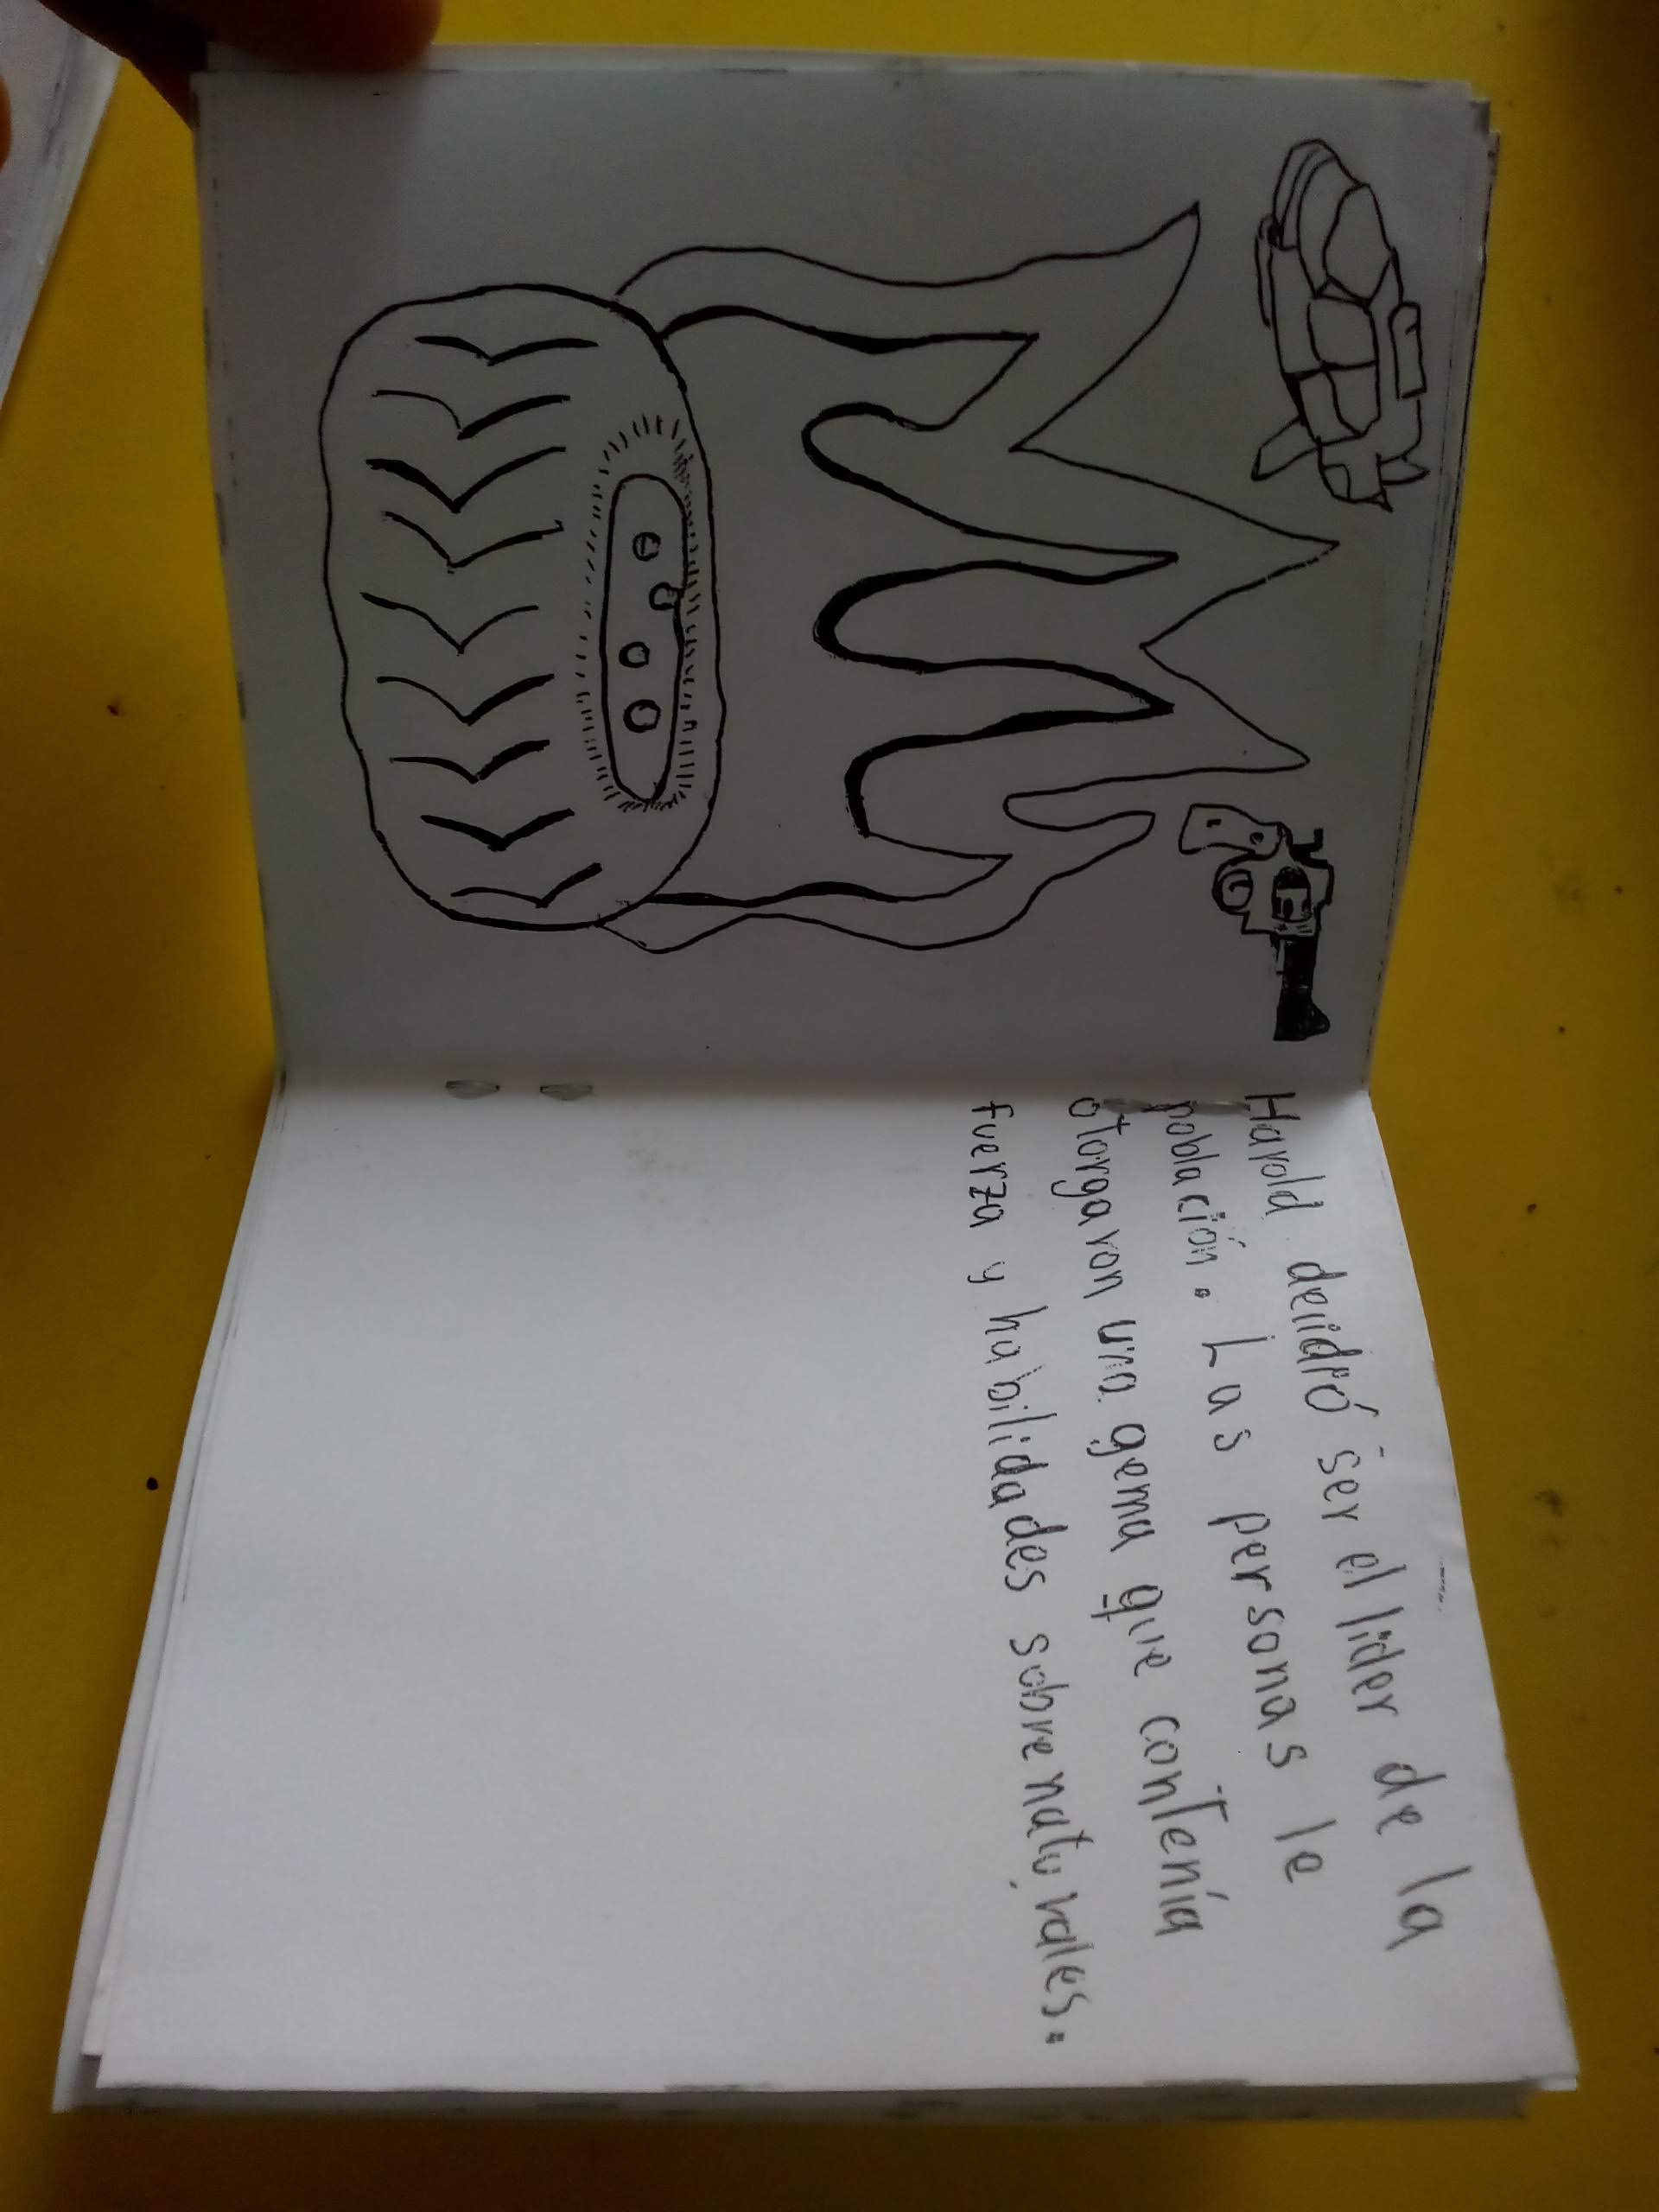 Harold decidió ser el líder de la
población. Las personas le
otorgaron una gema que contenía
fuerza y habilidades sobrenaturales.